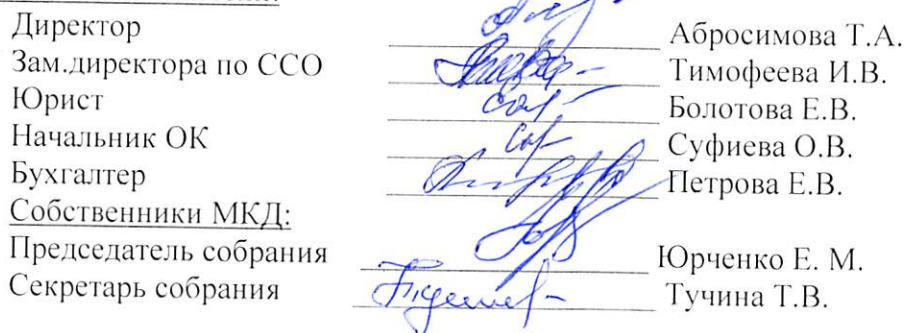 Директор Абросимова Т.А.
Зам.директора по ССО Тимофеева И.В.
Юрист Болотова Е.В.
Начальник ОК Суфиева О.В.
Бухгалтер Петрова Е.В.
Собственники МКД:
Председатель собрания Юрченко Е. М.
Секретарь собрания Тучина Т.В.